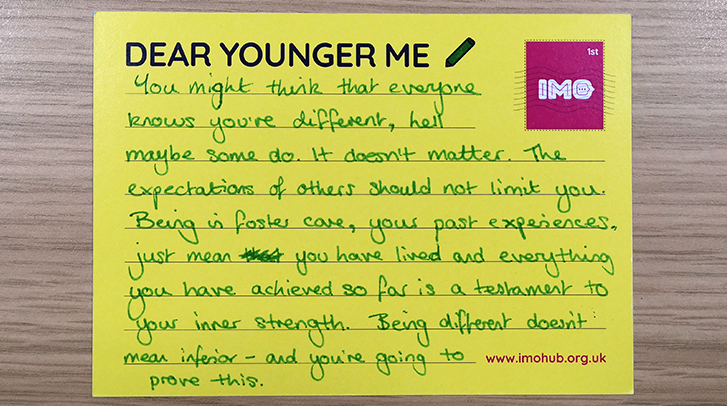 DEAR YOUNGER ME
1st
IMO
You might think that everyone
knows you're different, hell
maybe some do. It doesn't matter. The
expectations of others should not limit you.
Being in foster care, your past experiences,
just mean you have lived and everything
you have achieved so far is a testament to
your inner strength. Being different doesn't
mean inferior - and you're going to
prove this.
www.imohub.org.uk